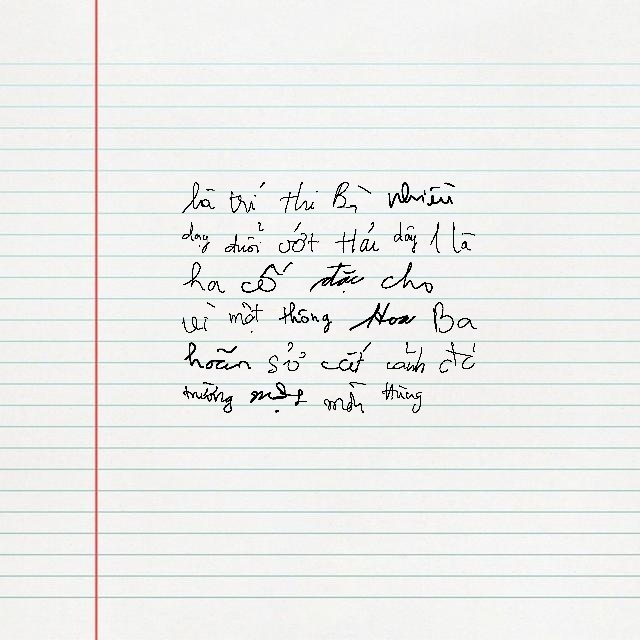 là trí thi Bì nhiều
dạy đuổi ướt Hải dây 1 là
ha cố đặc cho
vì một thông Hoa Ba
hoãn sở cất cảnh
trường một mồi thùng